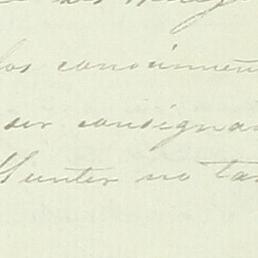 los conocimien
ser consignad
Gunter no tan